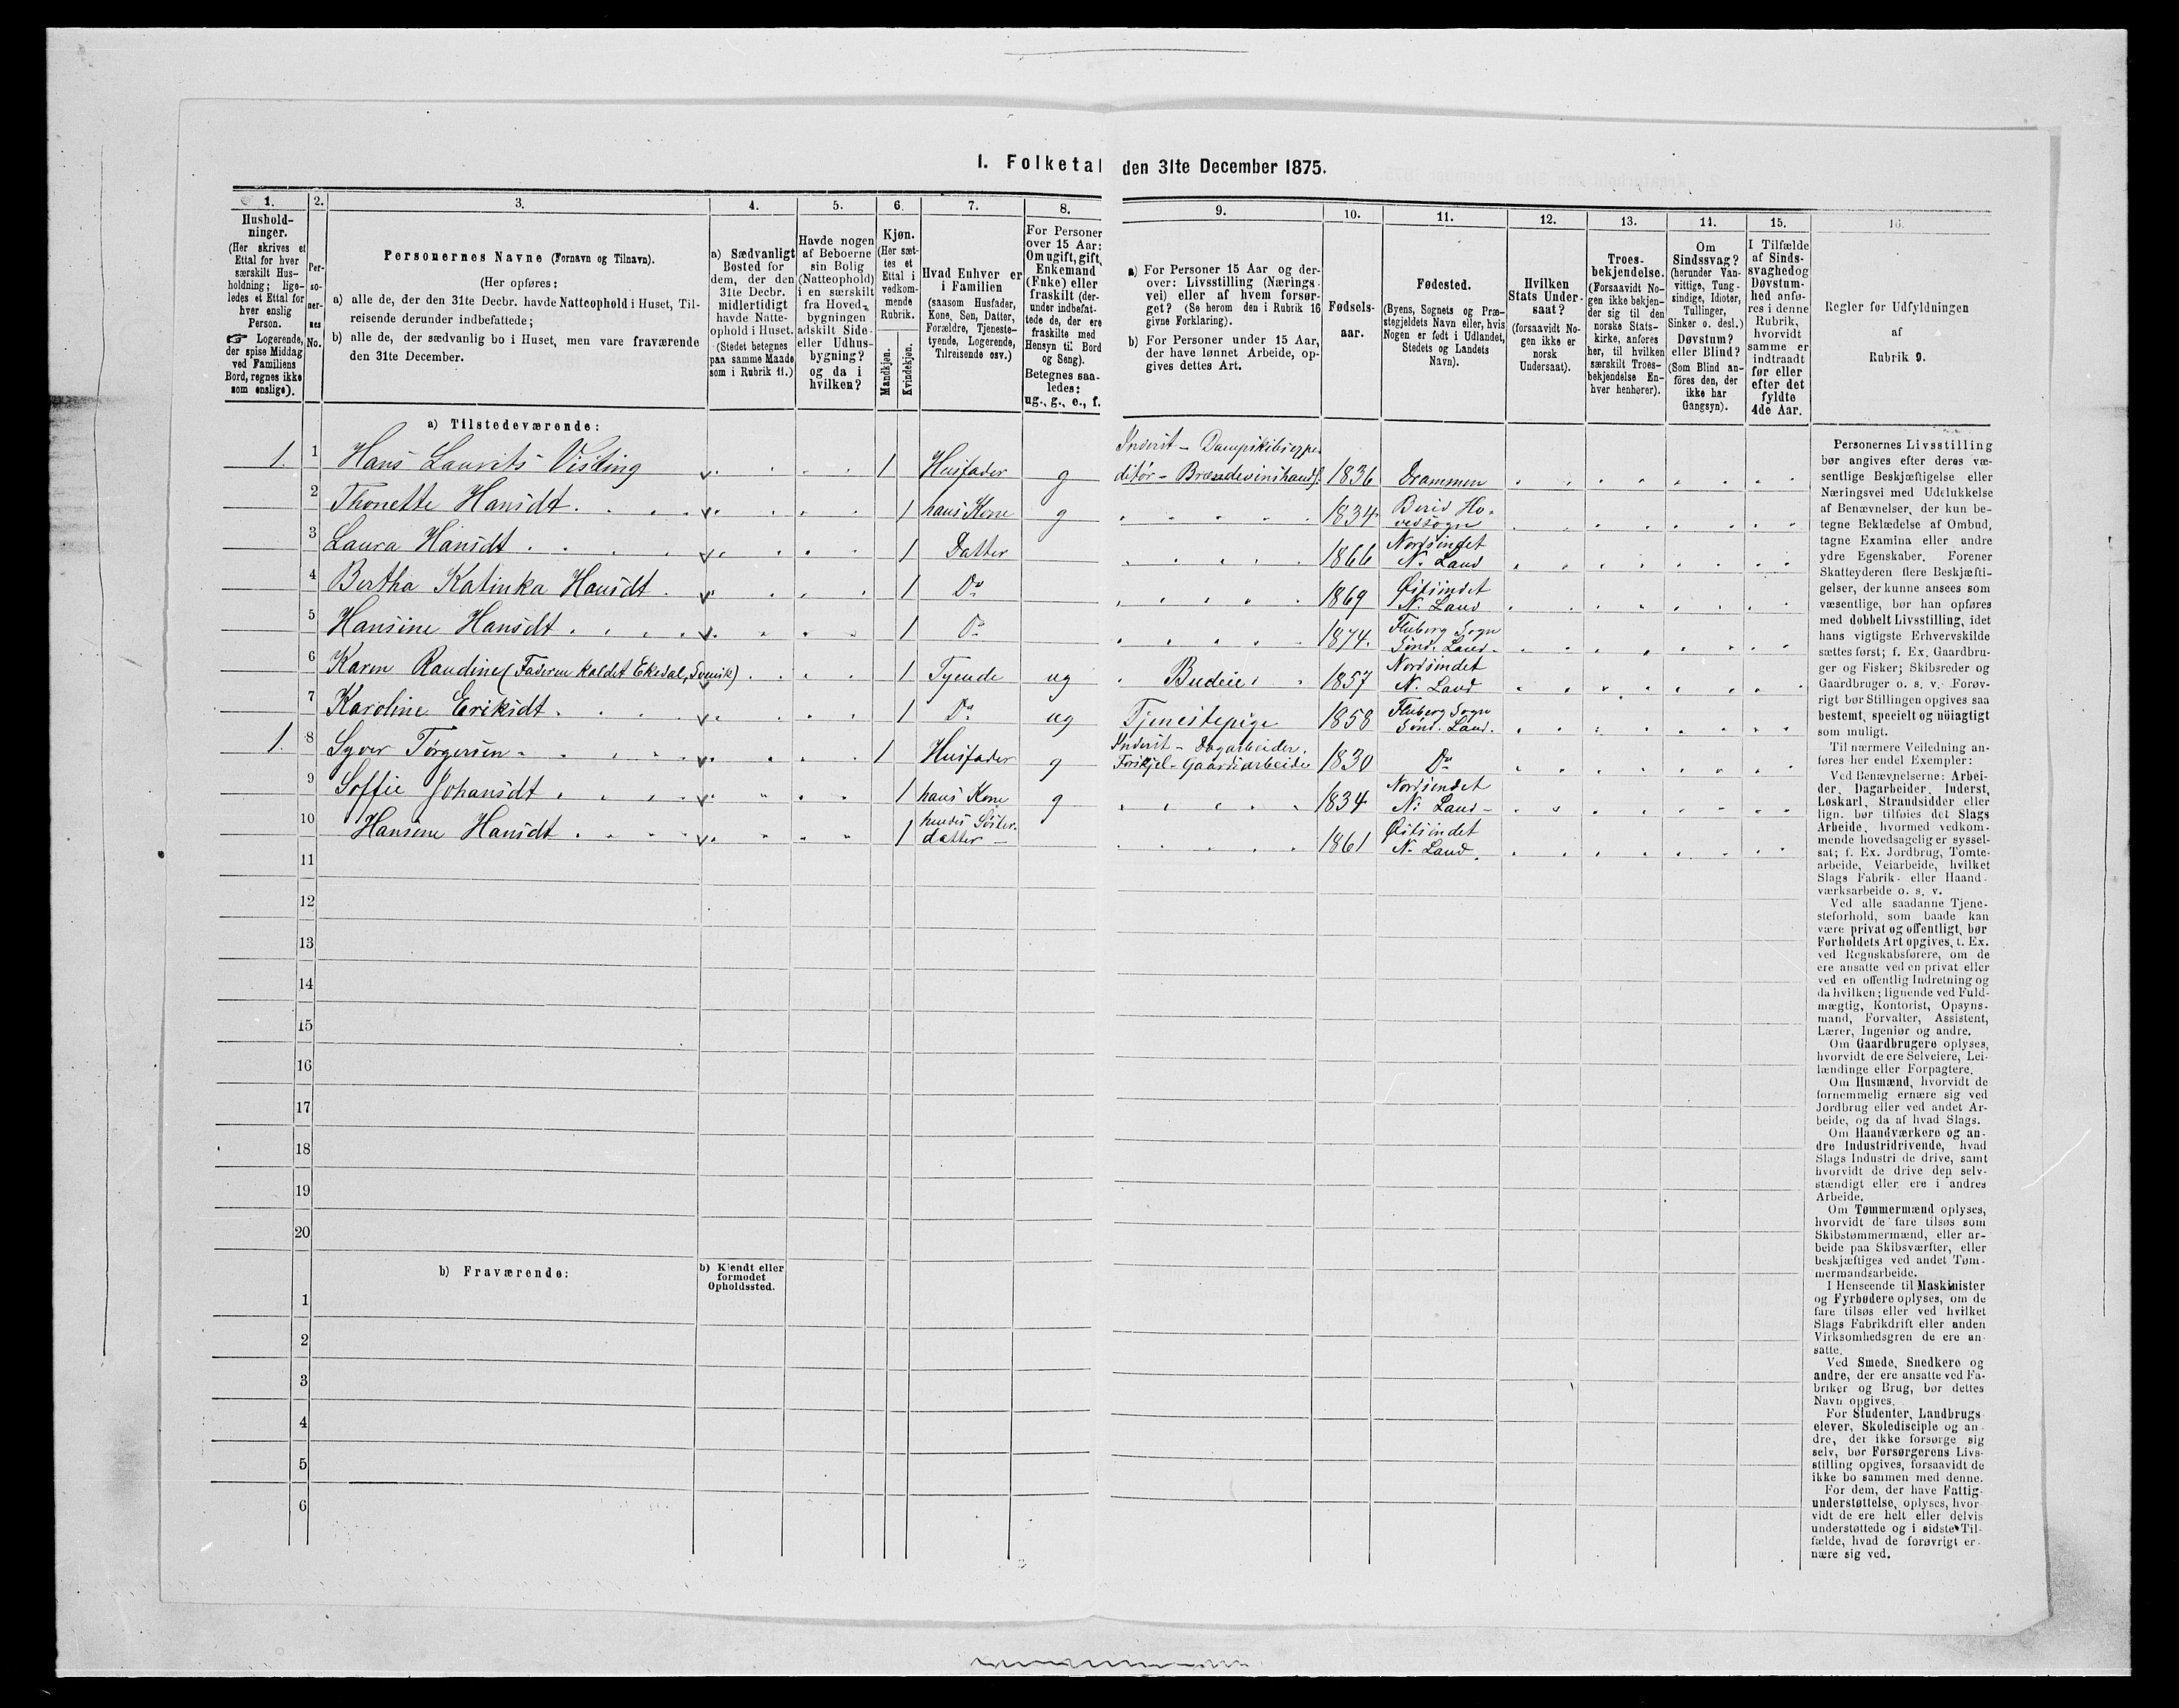 I. Folketal den 31te December 1875.
1.
Hushold-
ninger.
(Her skrives et
Ettal for hver
særskilt Hus-
holdning; lige-
ledes et Ettal for
hver enslig
Person.
☞ Logerende,
der spise Middag
ved Familiens
Bord, regnes ikke
som enslige).
2.
Per-
so-
ner-
nes
No.
3.
Personernes Navne (Fornavn og Tilnavn).
(Her opføres:
a) alle de, der den 31te Decbr. havde Natteophold i Huset, Til-
reisende derunder indbefattede;
b) alle de, der sædvanlig bo i Huset, men vare fraværende
den 31te December.
4.
a) Sædvanligt
Bosted for
dem, der den
31te Decbr.
midlertidigt
havde Natte-
ophold i Huset.
(Stedet betegnes
paa samme Maade
som i Rubrik 11.)
5.
Havde nogen
af Beboerne
sin Bolig
(Natteophold)
i en særskilt
fra Hoved-
bygningen
adskilt Side-
eller Udhus-
bygning?
og da i
hvilken?
6.
Kjøn.
(Her sæt-
tes et
Ettal i
vedkom-
mende
Rubrik.
Mandkjøn.
Kvindekjøn.
7.
Hvad Enhver er
i Familien
(saasom Husfader,
Kone, Søn, Datter,
Forældre, Tjeneste-
tyende, Logerende,
Tilreisende osv.)
8.
For Personer
over 15 Aar:
Om ugift, gift,
Enkemand
(Enke) eller
fraskilt (der-
under indbefat-
tede de, der ere
fraskilte med
Hensyn til Bord
og Seng).
Betegnes saa-
ledes:
ug., g., e., f.
9.
a) For Personer 15 Aar og der-
over: Livsstilling (Nærings-
vei) eller af hvem forsør-
get? (Se herom den i Rubrik 16
givne Forklaring).
b) For Personer under 15 Aar,
der have lønnet Arbeide, op-
gives dettes Art.
10.
Fødsels-
aar.
11.
Fødested.
(Byens, Sognets og Præ-
stegjeldets Navn eller, hvis
Nogen er født i Udlandet,
Stedets og Landets
Navn).
12.
Hvilken
Stats Under-
saat?
(forsaavidt No-
gen ikke er
norsk
Undersaat).
13.
Troes-
bekjendelse.
(Forsaavidt No-
gen ikke bekjen-
der sig til den
norske Stats-
kirke, anføres
her, til hvilken
særskilt Troes-
bekjendelse En-
hver henhører).
14.
Om
Sindssvag?
(herunder Van-
vittige, Tung-
sindige, Idioter,
Tullinger,
Sinker o. desl.)
Døvstum?
eller Blind?
(Som Blind an-
föres den, der
ikke har
Gangsyn).
15.
I Tilfælde
af Sinds-
svaghed og
Døvstum-
hed anfø-
res i denne
Rubrik,
hvorvidt
samme er
indtraadt
før eller
efter det
fyldte
4de Aar.
16.
Regler for Udfyldningen
af
Rubrik 9.
a) Tilstedeværende:
1. 1 Hans Laurits Visting 1 Husfader g Inderst - Dampskibsexpe-
ditør - Brændevinshandl. 1836 Drammen
2 Thonette Hansdt. 1 hans Kone g 1834 Birid Ho-
vedsogn
3 Laura Hansdt 1 Datter 1866 Nordsindet
N. Land
4 Bertha Katinka Hansdt 1 Do 1869 Østsindet
N. Land
5 Hansine Hansdt 1 Do 1874. Fluberg Sogn
Sønd. Land
6 Karen Raudine (Faderen kaldet Ekedal, Svensk) 1 Tyende ug Budeie 1857 Nordsindet
N. Land
7 Karoline Eriksdt. 1 Do ug Tjenestepige 1858 Fluberg Sogn
Sønd. Land.
1. 8 Syver Tørgersen 1 Husfader g Inderst - Dagarbeider.
Forskjel- Gaardsarbeide 1830 Do
9 Soffie Johansdt 1 hans Kone g 1834 Nordsindet
N. Land
10 Hansine Hansdt 1 hendes Søster-
datter 1861 Østsindet
N. Land.
11
12
13
14
15
16
17
18
19
20
b) Fraværende:
b) Kjendt eller
formodet
Opholdssted.
1
2
3
4
5
6
Personernes Livsstilling
bør angives efter deres væ-
sentlige Beskjæftigelse eller
Næringsvei med Udelukkelse
af Benævnelser, der kun be-
tegne Beklædelse af Ombud,
tagne Examina eller andre
ydre Egenskaber. Forener
Skatteyderen flere Beskjæfti-
gelser, der kunne ansees som
væsentlige, bør han opføres
med dobbelt Livsstilling, idet
hans vigtigste Erhvervskilde
sættes først; f. Ex. Gaardbru-
ger og Fisker; Skibsreder og
Gaardbruger o. s. v. Forøv-
rigt bør Stillingen opgives saa
bestemt, specielt og nöiagtigt
som muligt.
Til nærmere Veiledning an-
føres her endel Exempler:
Ved Benævnelserne: Arbei-
der, Dagarbeider, Inderst,
Løskarl, Strandsidder eller
lign. bør tilføies det Slags
Arbeide, hvormed vedkom-
mende hovedsagelig er syssel-
sat; f. Ex. Jordbrug, Tomte-
arbeide, Veiarbeide, hvilket
Slags Fabrik- eller Haand-
værksarbeide o. s. v.
Ved alle saadanne Tjene-
steforhold, som baade kan
være privat og offentligt, bør
Forholdets Art opgives, t. Ex.
ved Regnskabsførere, om de
ere ansatte ved en privat eller
ved en offentlig Indretning og
da hvilken; lignende ved Fuld-
mægtig, Kontorist, Opsyns-
mand, Forvalter, Assistent,
Lærer, Ingeniør og andre.
Om Gaardbrugere oplyses,
hvorvidt de ere Selveiere, Lei-
lændinge eller Forpagtere.
Om Husmænd, hvorvidt de
fornemmelig ernære sig ved
Jordbrug eller ved andet Ar-
beide, og da af hvad Slags.
Om Haandværkere og an-
dre Industridrivende, hvad
Slags Industri de drive, samt
hvorvidt de drive den selv-
stændigt eller ere i andres
Arbeide.
Om Tømmermænd oplyses,
hvorvidt de fare tilsøs som
Skibstømmermænd, eller ar-
beide paa Skibsværfter, eller
beskjæftiges ved andet Tøm-
mermandsarbeide.
I Henseende til Maskinister
og Fyrbødere oplyses, om de
fare tilsøs eller ved hvilket
Slags Fabrikdrift eller anden
Virksomhedsgren de ere an-
satte.
Ved Smede, Snedkere og
andre, der ere ansatte ved Fa-
briker og Brug, bør dettes
Navn opgives.
For Studenter, Landbrugs-
elever, Skoledisciple og an-
dre, der ikke forsørge sig
selv, bør Forsørgerens Livs-
stilling opgives, forsaavidt de
ikke bo sammen med denne.
For dem, der have Fattig-
understøttelse, oplyses, hvor-
vidt de ere helt eller delvis
understøttede og i sidste Til-
fælde, hvad de forøvrigt er-
nære sig ved.